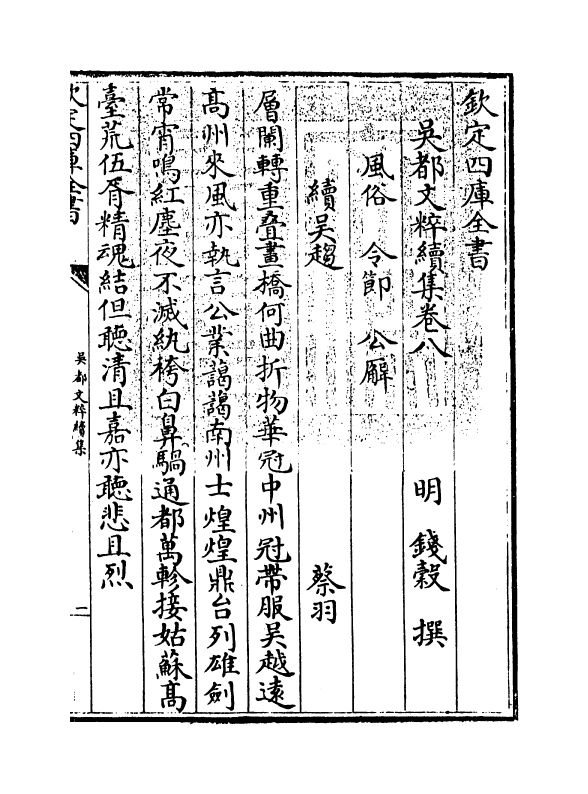 欽定四庫全書
吳都文粹續集卷八
明 錢穀 撰
風俗 令節 公廨
續吳趨
蔡羽
層闌轉重叠畫橋何曲折物華冠中州冠帶服吳越逺
髙州來風亦執言公業藹藹南州士煌煌鼎台列雄劍
常宵鳴紅塵夜不滅紈袴白鼻騧通都萬軫接姑蘇髙
臺荒伍胥精魂結但聽清且嘉亦聽悲且烈
欽定四庫全書
吳都文粹續集
一